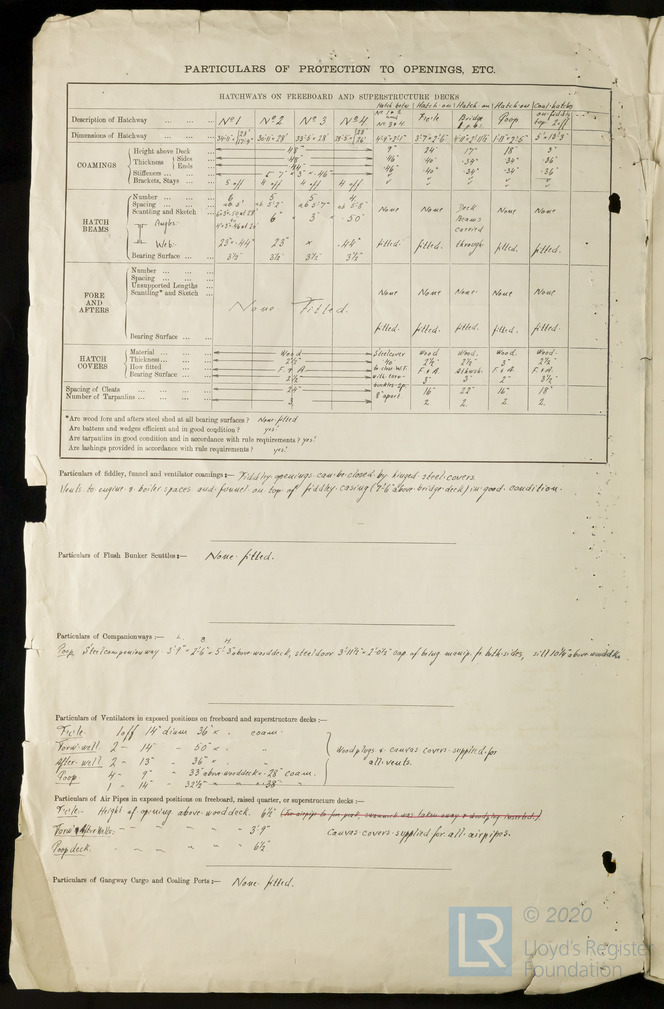 PARTICULARS OF PROTECTION TO OPENINGS, ETC.
HATCHWAYS ON FREEBOARD AND SUPERSTRUCTURE DECKS
Description of Hatchway ... Nº 1 Nº 2 Nº 3 Nº 4 Hatch betw Nº 1 & 2 and Nº 3 & 4. Hatch on Fx'cle Hatch on Bridge Hatch on Poop Coal hatches on fiddley top 2 off
Dimensions of Hatchway
COAMINGS
Height above Deck 48" 9" 24" 17" 18" 3"
Thickness Sides .48" .46" .40" .34" .34" .36"
Ends .44" .46" .40" .34" .34" .36"
Stiffeners ...
Brackets, Stays ... 5 off 4 off 4 off 4 off
HATCH BEAMS
Number ... 6 5 5 4
Spacing ...
Scantling and Sketch None None Deck Beams carried through None None
Angles 6" 3" .50"
Web 23" x .44" 23" x .44" fitted. fitted. fitted. fitted.
Bearing Surface ... 3½ 3½ 3½ 3½
FORE AND AFTERS
Number ...
Spacing ...
Unsupported Lengths
Scantling* and Sketch None Fitted. None None None None None
fitted. fitted. fitted. fitted. fitted.
Bearing Surface ...
HATCH COVERS
Material ... Wood Steel cover Wood Wood. Wood. Wood.
Thickness ... 2½" .40" 2½" 2½" 3" 2½"
How fitted ... F. & A. F. & A. Athwsh. F. & A. F. & A.
Bearing Surface ... 2½" 3" 3" 2" 3½"
Spacing of Cleats ... 24" 8" apart. 16" 22" 16" 18"
Number of Tarpaulins ... 3. 2. 2. 2. 2.
*Are wood fore and afters steel shod at all bearing surfaces? None fitted
Are battens and wedges efficient and in good condition? yes!
Are tarpaulins in good condition and in accordance with rule requirements? yes!
Are lashings provided in accordance with rule requirements? yes!
Particulars of fiddley, funnel and ventilator coamings :— Fiddley openings can be closed by hinged steel covers.
Vents to engine & boiler spaces and funnel on top of fiddley casing (7'6" above bridge deck) in good condition.
Particulars of Flush Bunker Scuttles :— None fitted.
Particulars of Companionways :— L. B. H.
Poop Steel companionway 3'9" x 2'6" x 5'3" above wood deck, steel door 3'11½" x 2'0½" cap of being manip. fr. both sides, sill 10½" above wood deck
Particulars of Ventilators in exposed positions on freeboard and superstructure decks :—
Fx'cle 1 off 14" diam 36" x . coam.
Forw. well 2 - 14" - 50" x
After well 2 - 13" - 36" x
Wood plugs & canvas covers supplied for all vents.
Poop 4 - 9" - 33" above wood deck x 28" coam.
1 - 14" - 32½" - x 38" -
Particulars of Air Pipes in exposed positions on freeboard, raised quarter, or superstructure decks :—
Fx'cle Height of opening above wood deck. 6½"
Forw & After Wells - - - - 3'9" Canvas covers supplied for all airpipes.
Poop deck. - - - - 6½"
Particulars of Gangway Cargo and Coaling Ports :— None fitted.
LR
© 2020
Lloyd's Register
Foundation